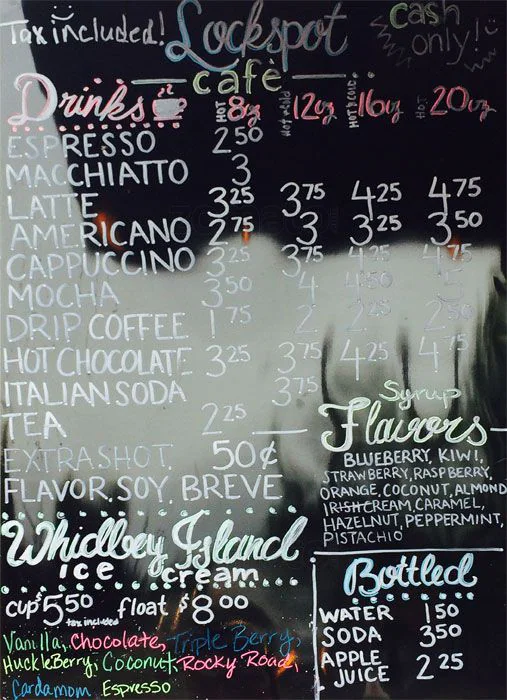 Tax included! Lockspot cash only!
café
Drinks HOT 8oz Hot & Cold 12oz Hot & Cold 16oz HOT 20oz
ESPRESSO 2 50
MACCHIATTO 3
LATTE 3 25 3 75 4 25 4 75
AMERICANO 2 75 3 3 25 3 50
CAPPUCCINO 3 25 3 75 4 25 4 75
MOCHA 3 50 4 4 50 5
DRIP COFFEE 1 75 2 2 25 2 50
HOT CHOCOLATE 3 25 3 75 4 25 4 75
ITALIAN SODA 3 75
TEA 2 25
EXTRA SHOT 50¢
FLAVOR. SOY. BREVE
Syrup
Flavors
BLUEBERRY, KIWI,
STRAWBERRY, RASPBERRY,
ORANGE, COCONUT, ALMOND
IRISH CREAM, CARAMEL,
HAZELNUT, PEPPERMINT,
PISTACHIO
Whidbey Island
ice cream
cup $5 50 tax included float $8 00
Vanilla, Chocolate, Triple Berry,
HuckleBerry, Coconut, Rocky Road,
Cardamom, Espresso
Bottled
WATER 1 50
SODA 3 50
APPLE JUICE 2 25